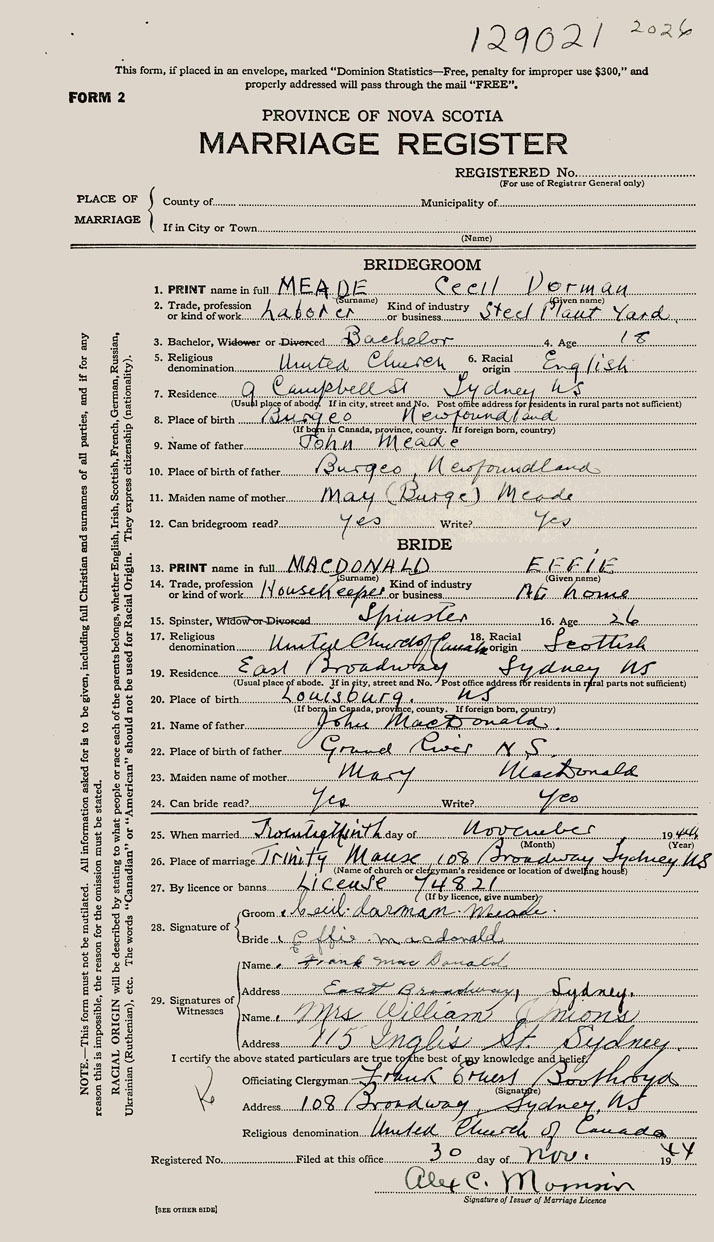 129021 2026
This form, if placed in an envelope, marked "Dominion Statistics—Free, penalty for improper use $300," and
properly addressed will pass through the mail "FREE".
FORM 2
PROVINCE OF NOVA SCOTIA
MARRIAGE REGISTER
REGISTERED No.
(For use of Registrar General only)
PLACE OF MARRIAGE
County of Municipality of
If in City or Town
(Name)
BRIDEGROOM
1. PRINT name in full MEADE Cecil Dorman
(Surname) (Given name)
2. Trade, profession or kind of work Laborer Kind of industry or business Steel Plant Yard
3. Bachelor, Widower or Divorced Bachelor 4. Age 18
5. Religious denomination United Church 6. Racial origin English
7. Residence 9 Campbell St Sydney NS
(Usual place of abode. If in city, street and No. Post office address for residents in rural parts not sufficient)
8. Place of birth Burgeo Newfoundland
(If born in Canada, province, county. If foreign born, country)
9. Name of father John Meade
10. Place of birth of father Burgeo, Newfoundland
11. Maiden name of mother May (Burge) Meade
12. Can bridegroom read? Yes Write? Yes
BRIDE
13. PRINT name in full MACDONALD EFFIE
(Surname) (Given name)
14. Trade, profession or kind of work Housekeeper Kind of industry or business At home
15. Spinster, Widow or Divorced Spinster 16. Age 26
17. Religious denomination United Church of Canada 18. Racial origin Scottish
19. Residence East Broadway Sydney NS
(Usual place of abode. If in city, street and No. Post office address for residents in rural parts not sufficient)
20. Place of birth Louisburg, NS
(If born in Canada, province, county. If foreign born, country)
21. Name of father John MacDonald.
22. Place of birth of father Grand River N.S.
23. Maiden name of mother Mary MacDonald
24. Can bride read? Yes Write? Yes
25. When married day of November 1944
(Month) (Year)
26. Place of marriage Trinity Manse, 108 Broadway Sydney, NS
(Name of church or clergyman's residence or location of dwelling house)
27. By licence or banns License 74821
(If by licence, give number)
28. Signature of
Groom Ceil. darman. Meade.
Bride Effie macdonald
29. Signatures of Witnesses
Name Frank Mac Donald
Address East Broadway, Sydney.
Name Mrs William Onions
Address 115 Inglis St. Sydney.
I certify the above stated particulars are true to the best of my knowledge and belief.
Officiating Clergyman Frank Ernest Boothroyd
(Signature)
Address 108 Broadway, Sydney, NS
Religious denomination United Church of Canada
Registered No. Filed at this office 30 day of Nov. 1944
Alex C. Morrison
Signature of Issuer of Marriage Licence
[SEE OTHER SIDE]
NOTE.—This form must not be mutilated. All information asked for is to be given, including full Christian and surnames of all parties, and if for any
reason this is impossible, the reason for the omission must be stated.
RACIAL ORIGIN will be described by stating to what people or race each of the parents belongs, whether English, Irish, Scottish, French, German, Russian,
Ukrainian (Ruthenian), etc. The words "Canadian" or "American" should not be used for Racial Origin. They express citizenship (nationality).